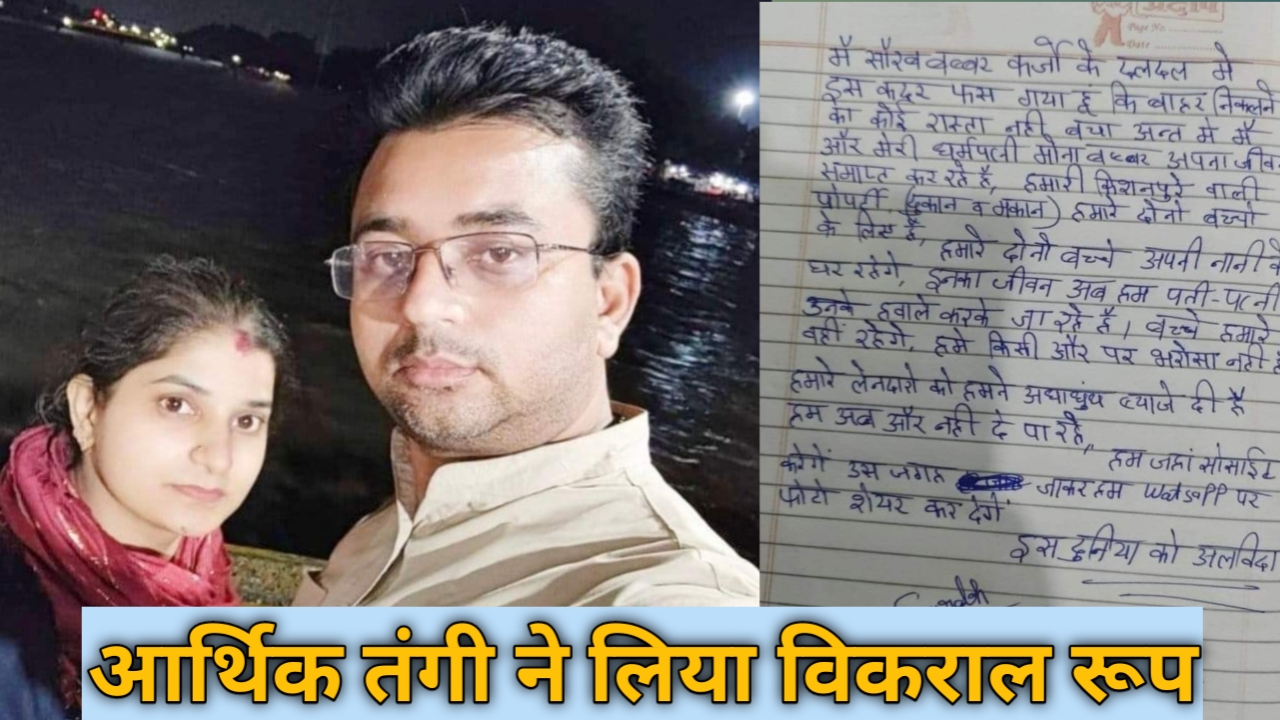 Page No.
Date
मै सौरव बब्बर कर्जो के दलदल मे
इस कदर फस गया हूं कि बाहर निकलने
का कोई रास्ता नही बचा अन्त मे मै
और मेरी धर्मपत्नी मोना बब्बर अपना जीवन
समाप्त कर रहे है, हमारी किशनपुरे वाली
प्रोपर्टी (दुकान व मकान) हमारे दोनो बच्चो
के लिए है,
हमारे दोनो बच्चे अपनी नानी के
घर रहेगे, इनका जीवन अब हम पती-पत्नी
उनके हवाले करके जा रहे है। बच्चे हमारे
वहीं रहेगे, हमे किसी और पर भरोसा नही है
हमारे लेनदारो को हमने अधाधुंध ब्याजे दी है
हम अब और नही दे पा रहे,
हम जहां सोसाईट
करेगें उस जगह जाकर हम watsapp पर
फोटो शेयर कर देगें
इस दुनिया को अलविदा
आर्थिक तंगी ने लिया विकराल रूप